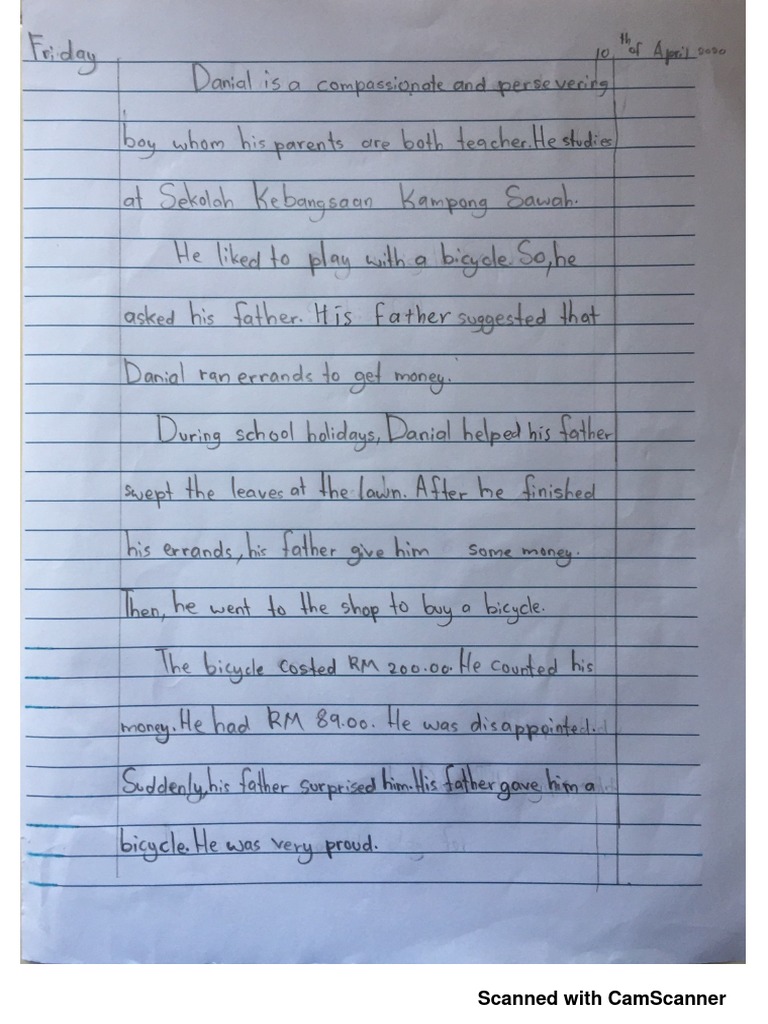 Friday 10th of April 2020
Danial is a compassionate and persevering
boy whom his parents are both teacher. He studies
at Sekolah Kebangsaan Kampong Sawah.
He liked to play with a bicycle. So, he
asked his father. His Father suggested that
Danial ran errands to get money.
During school holidays, Danial helped his father
swept the leaves at the lawn. After he finished
his errands, his father give him some money.
Then, he went to the shop to buy a bicycle.
The bicycle costed RM 200.00. He counted his
money. He had RM 89.00. He was disappointed.
Suddenly, his father surprised him. His father gave him a
bicycle. He was very proud.
Scanned with CamScanner